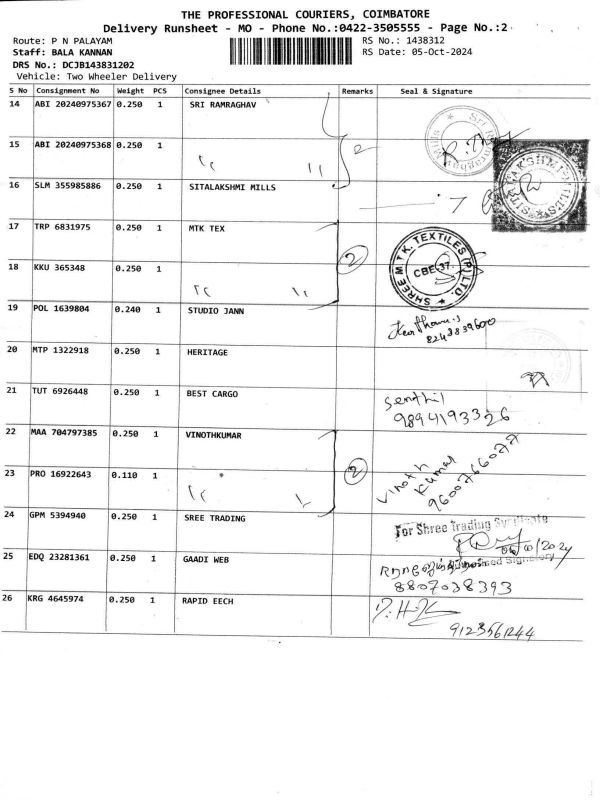 THE PROFESSIONAL COURIERS, COIMBATORE
Delivery Runsheet - MO - Phone No.:0422-3505555 - Page No.:2
Route: P N PALAYAM
RS No.: 1438312
Staff: BALA KANNAN
RS Date: 05-Oct-2024
DRS No.: DCJB143831202
Vehicle: Two Wheeler Delivery
S No Consignment No Weight PCS Consignee Details Remarks Seal & Signature
14 ABI 20240975367 0.250 1 SRI RAMRAGHAV
15 ABI 20240975368 0.250 1 " "
2
16 SLM 355985886 0.250 1 SITALAKSHMI MILLS
17 TRP 6831975 0.250 1 MTK TEX
2
SHREE M TK. TEXTILES (P) LTD.
CBE-37.
18 KKU 365348 0.250 1 " "
19 POL 1639804 0.240 1 STUDIO JANN
8248839600
20 MTP 1322918 0.250 1 HERITAGE
21 TUT 6926448 0.250 1 BEST CARGO
Senthil
9894193326
22 MAA 704797385 0.250 1 VINOTHKUMAR
2
Vinoth
Kumar
9600766077
23 PRO 16922643 0.110 1 " "
24 GPM 5394940 0.250 1 SREE TRADING
For Shree Trading Syndicate
25 EDQ 23281361 0.250 1 GAADI WEB
Signatory
8807038393
26 KRG 4645974 0.250 1 RAPID EECH
9123561244